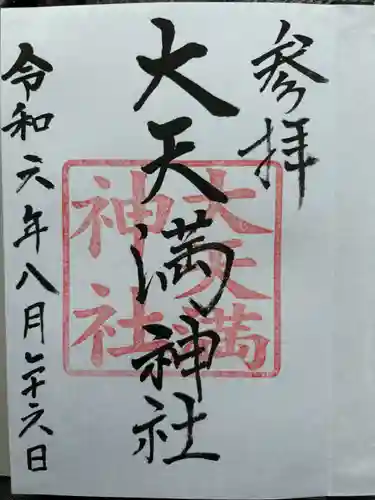 参拝
大天満神社
大天満
神社
令和六年八月廿六日